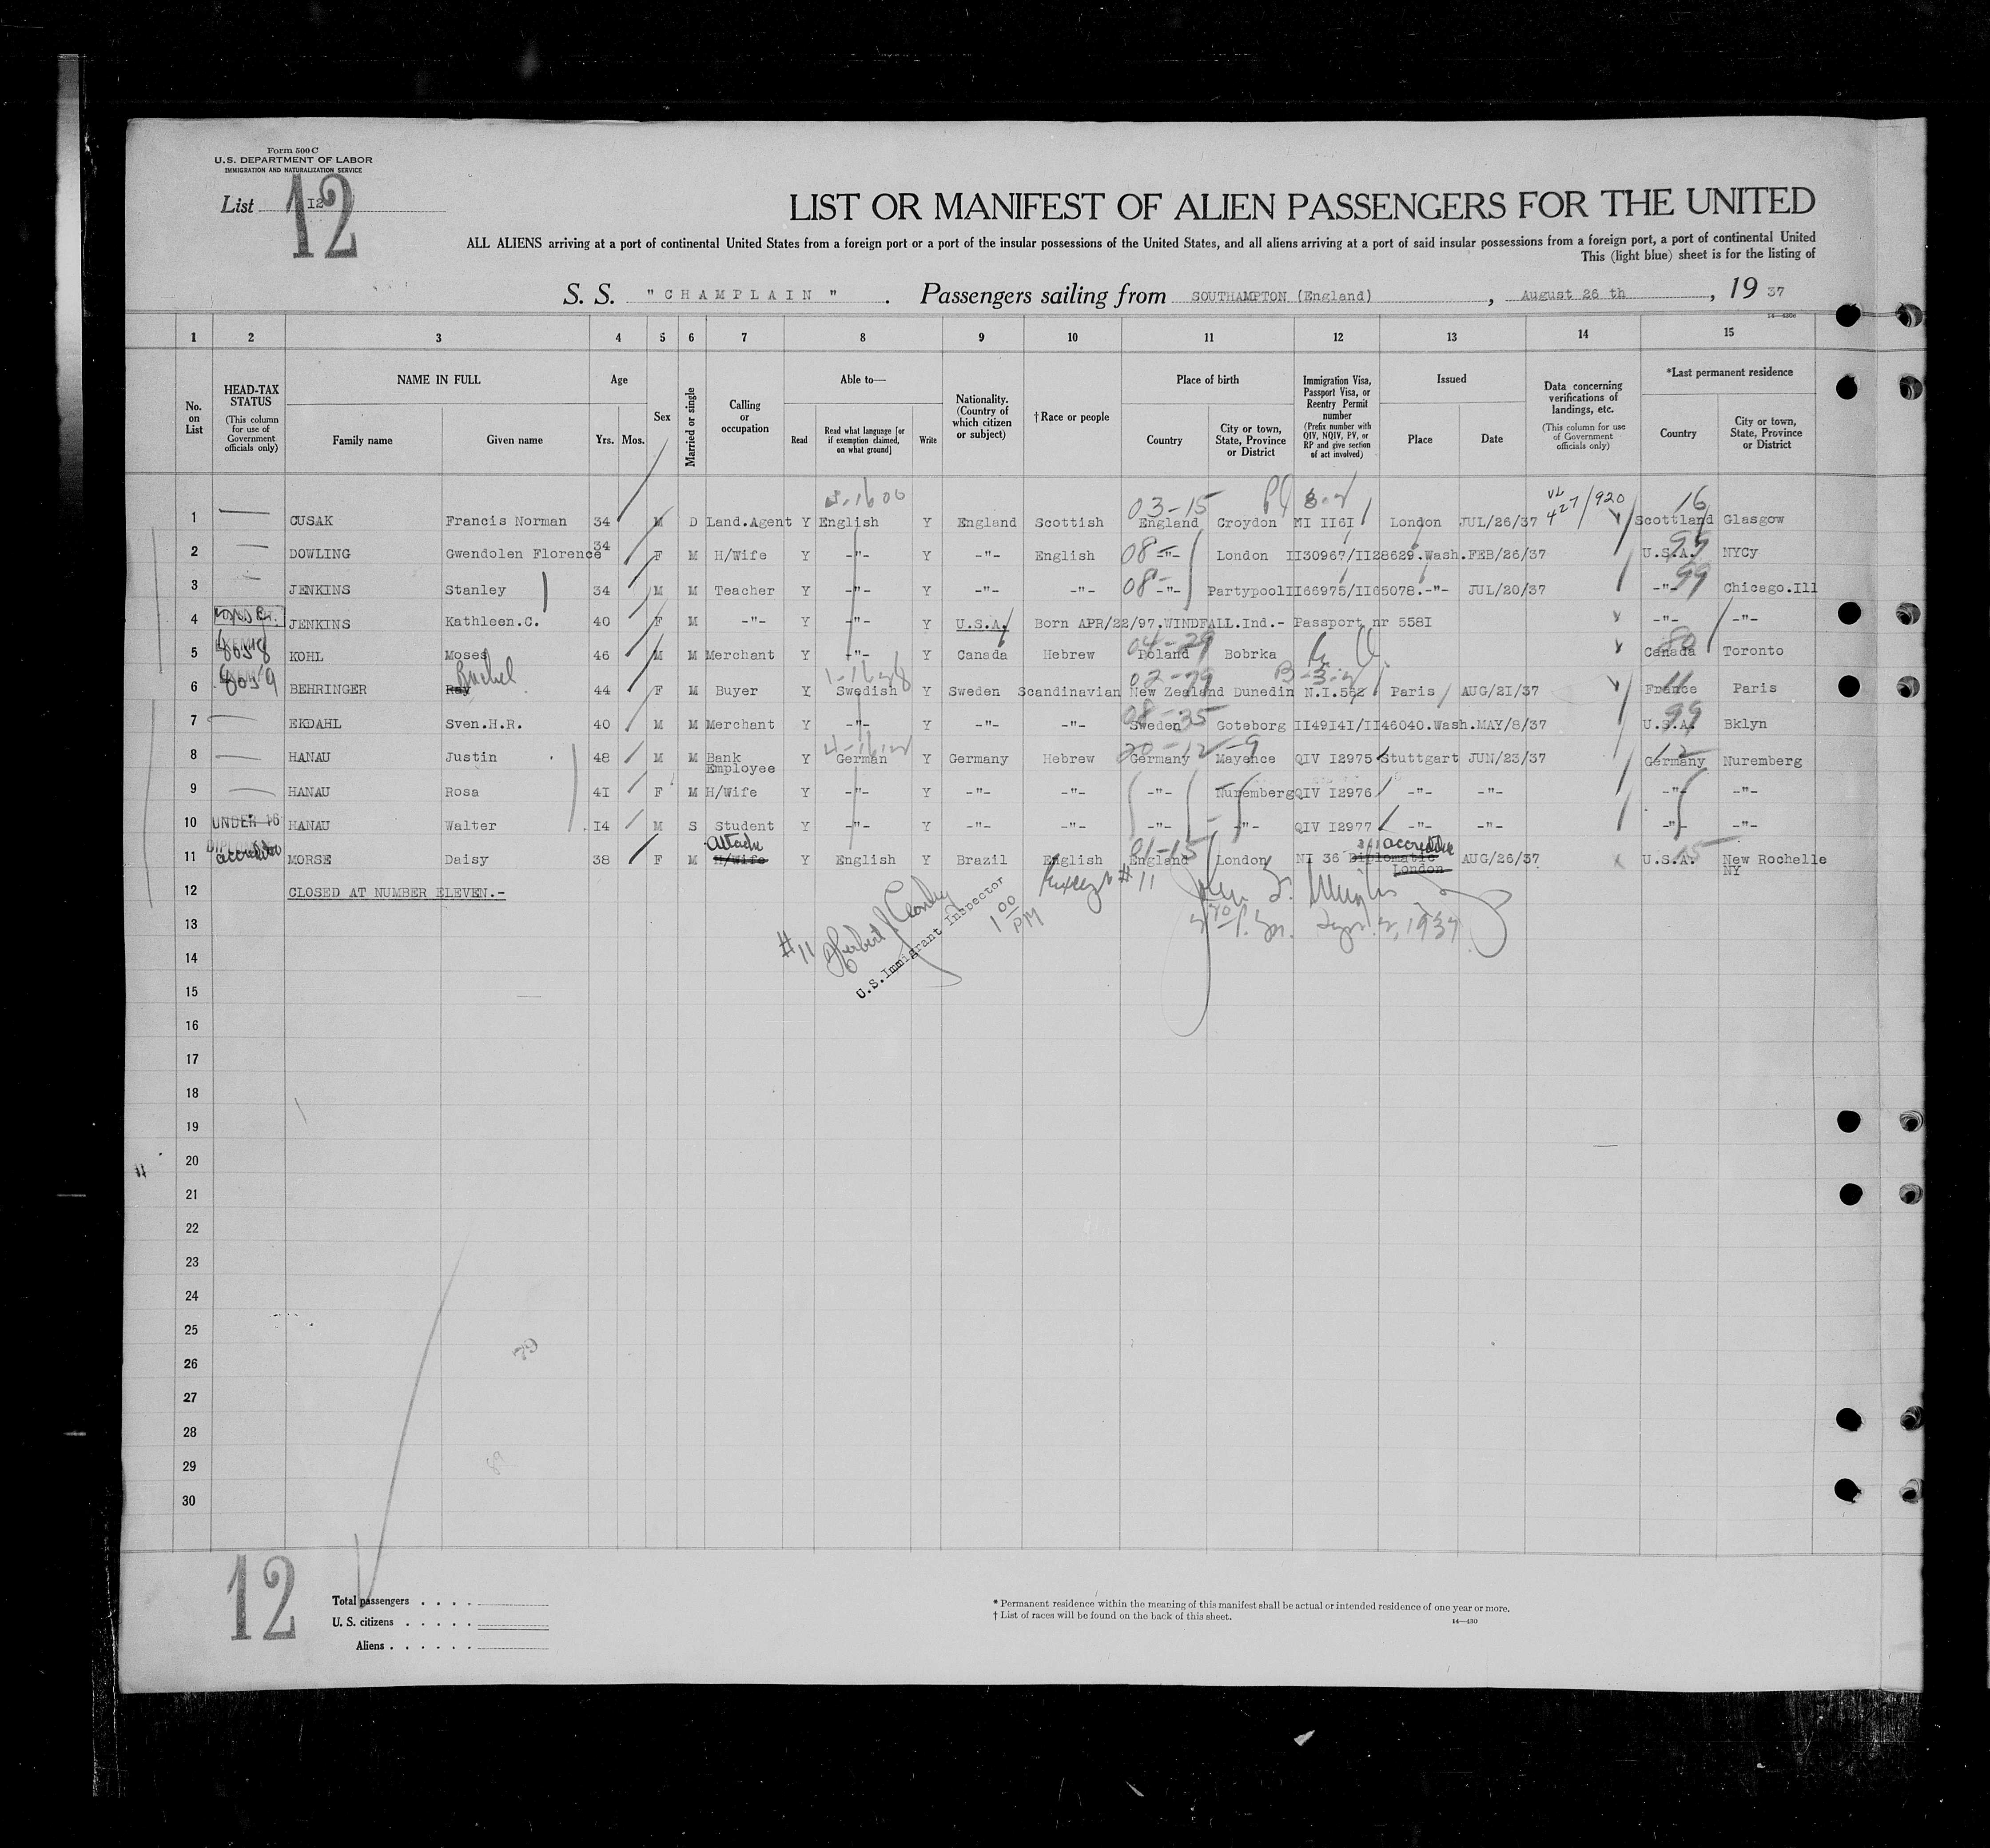 Form 500 C
U.S. DEPARTMENT OF LABOR
IMMIGRATION AND NATURALIZATION SERVICE
List I2
12
LIST OR MANIFEST OF ALIEN PASSENGERS FOR THE UNITED
ALL ALIENS arriving at a port of continental United States from a foreign port or a port of the insular possessions of the United States, and all aliens arriving at a port of said insular possessions from a foreign port, a port of continental United
This (light blue) sheet is for the listing of
S. S. "CHAMPLAIN" . Passengers sailing from SOUTHAMPTON (England) , August 26 th , 19 37
1 2 3 4 5 6 7 8 9 10 11 12 13 14 15
No. on List
HEAD-TAX STATUS (This column for use of Government officials only)
NAME IN FULL
Family name Given name
Age
Yrs. Mos.
Sex
Married or single
Calling or occupation
Able to—
Read Read what language [or if exemption claimed, on what ground] Write
Nationality. (Country of which citizen or subject)
† Race or people
Place of birth
Country City or town, State, Province or District
Immigration Visa, Passport Visa, or Reentry Permit number (Prefix number with QIV, NQIV, PV, or RP and give section of act involved)
Issued
Place Date
Data concerning verifications of landings, etc. (This column for use of Government officials only)
*Last permanent residence
Country City or town, State, Province or District
03-15 427/920 16
1 CUSAK Francis Norman 34 M D Land.Agent Y English Y England Scottish England Croydon NI II6I London JUL/26/37 Scottland Glasgow
2 DOWLING Gwendolen Florence 34 F M H/Wife Y -"- Y -"- English 08 -"- London II30967/II28629.Wash.FEB/26/37 U.S.A. 99 NYCy
3 JENKINS Stanley 34 M M Teacher Y -"- Y -"- -"- 08 -"- PartypoolII66975/II65078.-"- JUL/20/37 -"- 99 Chicago.Ill
4 JENKINS Kathleen.C. 40 F M -"- Y -"- Y U.S.A. Born APR/22/97.WINDFALL.Ind.- Passport nr 558I -"- -"-
5 KOHL Moses 46 M M Merchant Y -"- Y Canada Hebrew Poland Bobrka Canada 80 Toronto
6 BEHRINGER Ray Rachel 44 F M Buyer Y Swedish Y Sweden Scandinavian New Zealand Dunedin N.I.562 Paris AUG/2I/37 France 11 Paris
7 EKDAHL Sven.H.R. 40 M M Merchant Y -"- Y -"- -"- Sweden 08-35 Goteborg II49I4I/II46040.Wash.MAY/8/37 U.S.A. 99 Bklyn
8 HANAU Justin 48 M M Bank Employee Y German Y Germany Hebrew Germany Mayence QIV I2975 Stuttgart JUN/23/37 Germany 12 Nuremberg
9 HANAU Rosa 4I F M H/Wife Y -"- Y -"- -"- -"- Nuremberg QIV I2976 -"- -"- -"- -"-
10 UNDER 16 HANAU Walter I4 M S Student Y -"- Y -"- -"- -"- -"- QIV I2977 -"- -"- -"- -"-
11 accredited MORSE Daisy 38 F M H/Wife Attache Y English Y Brazil English England 01-15 London NI 36 Diplomatic London AUG/26/37 U.S.A. 15 New Rochelle NY
12 CLOSED AT NUMBER ELEVEN.-
13
14
15
16
17
18
19
20
21
22
23
24
25
26
27
28
29
30
#11
U.S. Immigrant Inspector
1 00 PM
Except #11
1937
12
Total passengers . . . .
U. S. citizens . . . . .
Aliens . . . . . .
* Permanent residence within the meaning of this manifest shall be actual or intended residence of one year or more.
† List of races will be found on the back of this sheet.
14—430